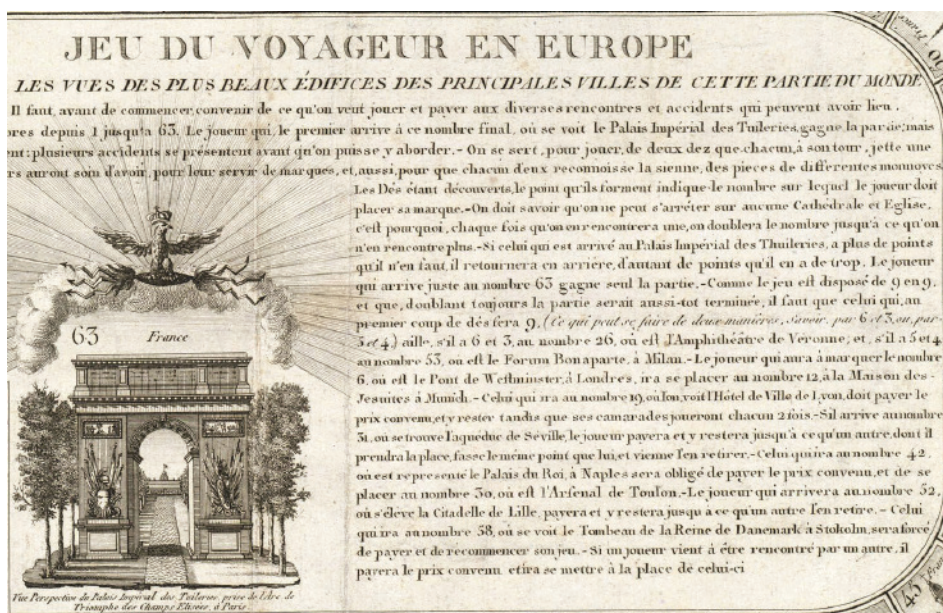 JEU DU VOYAGEUR EN EUROPE
LES VUES DES PLUS BEAUX ÉDIFICES DES PRINCIPALES VILLES DE CETTE PARTIE DU MONDE
Il faut, avant de commencer, convenir de ce qu'on veut jouer et payer aux diverses rencontres et accidents qui peuvent avoir lieu.
bres depuis 1 jusqu'a 63. Le joueur qui, le premier arrive à ce nombre final, où se voit le Palais Impérial des Tuileries, gagne la partie; mais
ent: plusieurs accidents se présentent avant qu'on puisse y aborder. - On se sert, pour jouer, de deux dez que chacun, à son tour, jette une
rs auront soin d'avoir, pour leur servir de marques, et, aussi, pour que chacun d'eux reconnoisse la sienne, des pieces de différentes monnoyes.
Les Dés étant découverts, le point qu'ils forment indique le nombre sur lequel le joueur doit
placer sa marque. - On doit savoir qu'on ne peut s'arréter sur aucune Cathédrale et Eglise,
c'est pourquoi, chaque fois qu'on en rencontrera une, on doublera le nombre jusqu'à ce qu'on
n'en rencontre plus. - Si celui qui est arrivé au Palais Impérial des Thuileries, a plus de points
qu'il n'en faut, il retournera en arriére, d'autant de points qu'il en a de trop. Le joueur
qui arrive juste au nombre 63 gagne seul la partie. - Comme le jeu est disposé de 9 en 9,
et que, doublant toujours la partie serait aussi-tot terminée, il faut que celui qui, au
premier coup de dés fera 9, (Ce qui peut se faire de deux manières, Savoir, par 6 et 3, ou, par
5 et 4,) aille, s'il a 6 et 3, au nombre 26, où est l'Amphithéatre de Veronne, et, s'il a 5 et 4
au nombre 53, où est le Forum Bonaparte, à Milan. - Le joueur qui aura à marquer le nombre
6, où est le Pont de Westminster, à Londres, ira se placer au nombre 12, à la Maison des -
Jesuites à Munich. - Celui qui ira au nombre 19, où l'on voit l'Hôtel de Ville de Lyon, doit payer le
prix convenu, et y rester tandis que ses camarades joueront chacun 2 fois. - S'il arrive au nombre
31, où se trouve l'aqueduc de Séville, le joueur payera et y restera jusqu'à ce qu'un autre, dont il
prendra la place, fasse le même point que lui, et vienne l'en retirer. - Celui qui ira au nombre 42,
où est representé le Palais du Roi, à Naples sera obligé de payer le prix convenu, et de se
placer au nombre 30, où est l'Arsenal de Toulon. - Le joueur qui arrivera au nombre 52,
où s'éleve la Citadelle de Lille, payera et y restera jusqu'à ce qu'un autre l'en retire. - Celui
qui ira au nombre 58, où se voit le Tombeau de la Reine de Danemark à Stokolm, sera forcé
de payer et de recommencer son jeu. - Si un joueur vient à être rencontré par un autre, il
payera le prix convenu et ira se mettre à la place de celui-ci
63 France
Vue Perspective du Palais Impérial des Tuileries, prise de l'Arc de
Triomphe des Champs Elisées, à Paris.
45